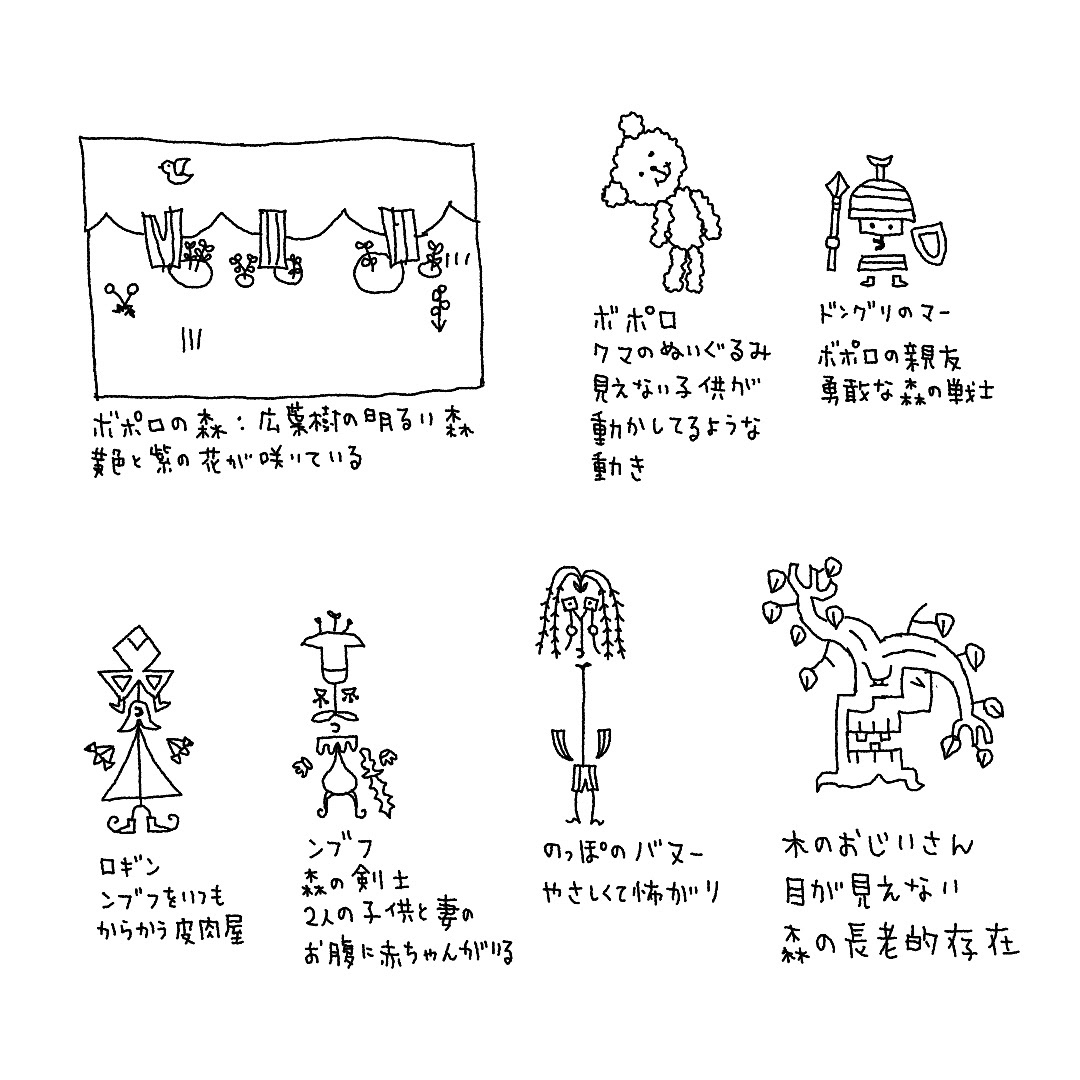 ボポロの森：広葉樹の明るい森
黄色と紫の花が咲いている
ボポロ
クマのぬいぐるみ
見えない子供が
動かしてるような
動き
ドングリのマー
ボポロの親友
勇敢な森の戦士
ロギン
ンブフをいつも
からかう皮肉屋
ンブフ
森の剣士
2人の子供と妻の
お腹に赤ちゃんがいる
のっぽのバヌー
やさしくて怖がり
木のおじいさん
目が見えない
森の長老的存在